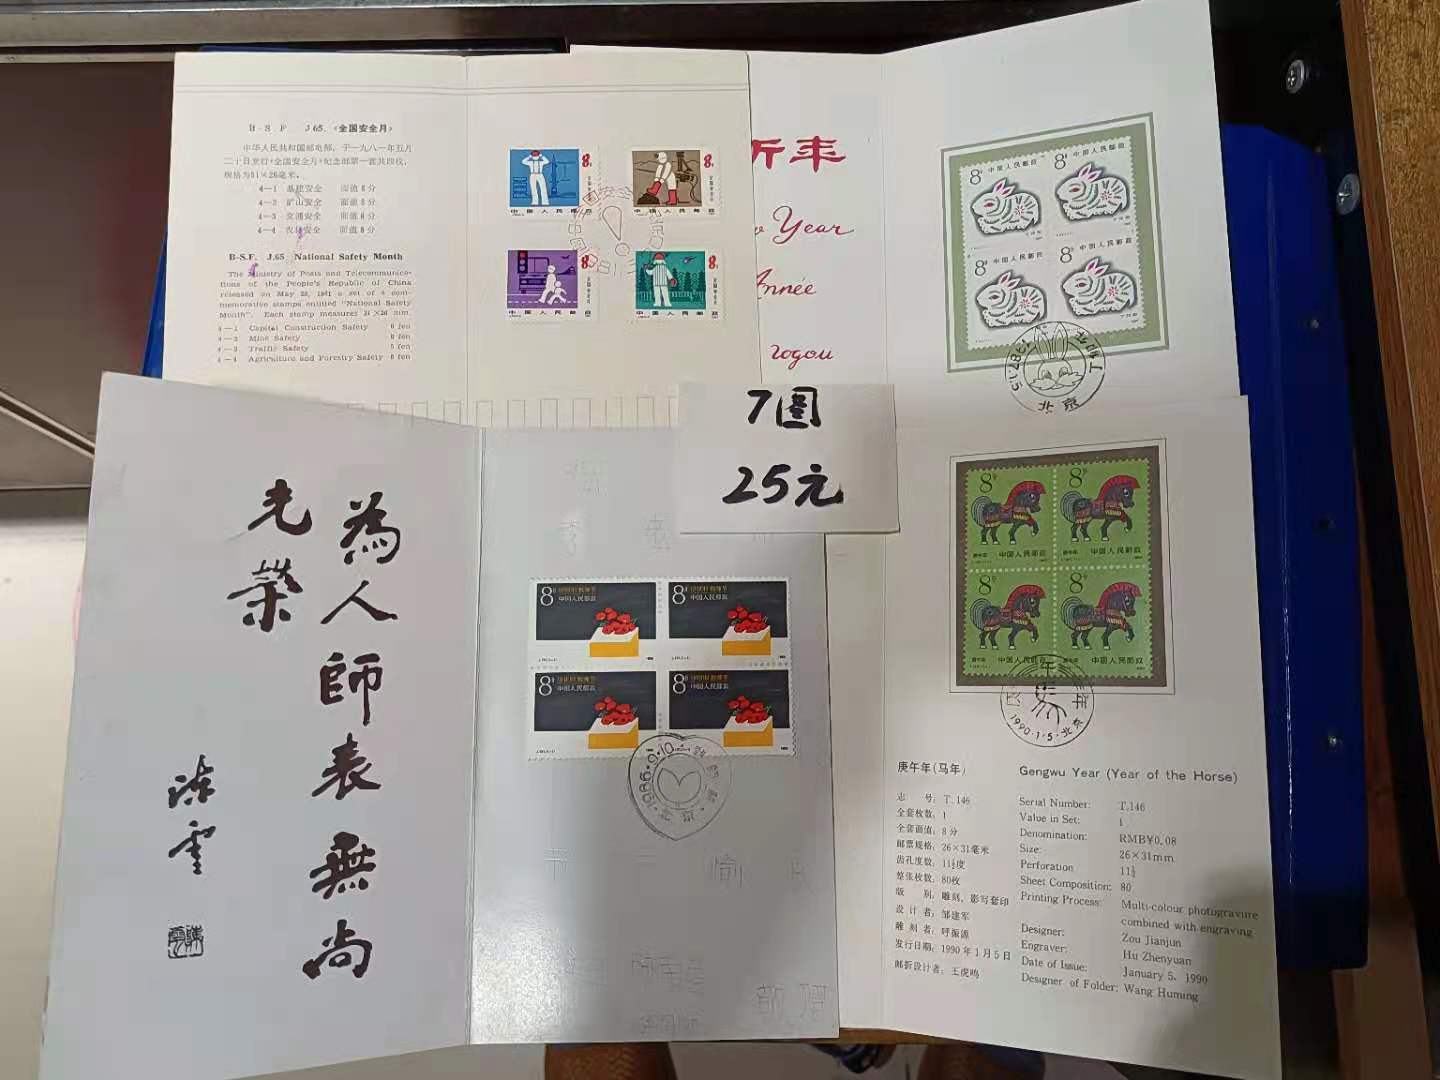 B-S.F. J.65.《全国安全月》
中华人民共和国邮电部，于一九八一年五月
二十日发行《全国安全月》纪念邮票一套共四枚，
规格为31×26毫米。
4—1 基建安全 面值8分
4—2 矿山安全 面值8分
4—3 交通安全 面值8分
4—4 农林安全 面值8分
B-S.F. J.65 National Safety Month
The Ministry of Posts and Telecommunica-
tions of the People's Republic of China
released on May 20, 1981 a set of 4 com-
memorative stamps entitled "National Safety
Month". Each stamp measures 31×26 mm.
4—1 Capital Construction Safety 8 fen
4—2 Mine Safety 8 fen
4—3 Traffic Safety 8 fen
4—4 Agriculture and Forestry Safety 8 fen
8分
中国人民邮政
8分
中国人民邮政
8分
中国人民邮政
8分
中国人民邮政
新年
Year
Année
годом
8分 中国人民邮政
8分 中国人民邮政
8分 中国人民邮政
8分 中国人民邮政
1987.1.5
北京
7图
25元
為人師表無尚
光榮
陈雲
8分
中国人民邮政
8分
中国人民邮政
8分
中国人民邮政
8分
中国人民邮政
1986.9.10
8分
庚午年 中国人民邮政
8分
庚午年 中国人民邮政
8分
庚午年 中国人民邮政
8分
庚午年 中国人民邮政
1990.1.5.北京
庚午年(马年) Gengwu Year (Year of the Horse)
志 号：T.146
全套枚数：1
全套面值：8分
邮票规格：26×31毫米
齿孔度数：11½度
整张枚数：80枚
版 别：雕刻、影写套印
设 计 者：邹建军
雕 刻 者：呼振源
发行日期：1990年1月5日
邮折设计者：王虎鸣
Serial Number: T.146
Value in Set: 1
Denomination: RMB¥0.08
Size: 26×31mm
Perforation 11½
Sheet Composition: 80
Printing Process: Multi-colour photogravure
combined with engraving
Designer: Zou Jianjun
Engraver: Hu Zhenyuan
Date of Issue: January 5, 1990
Designer of Folder: Wang Huming